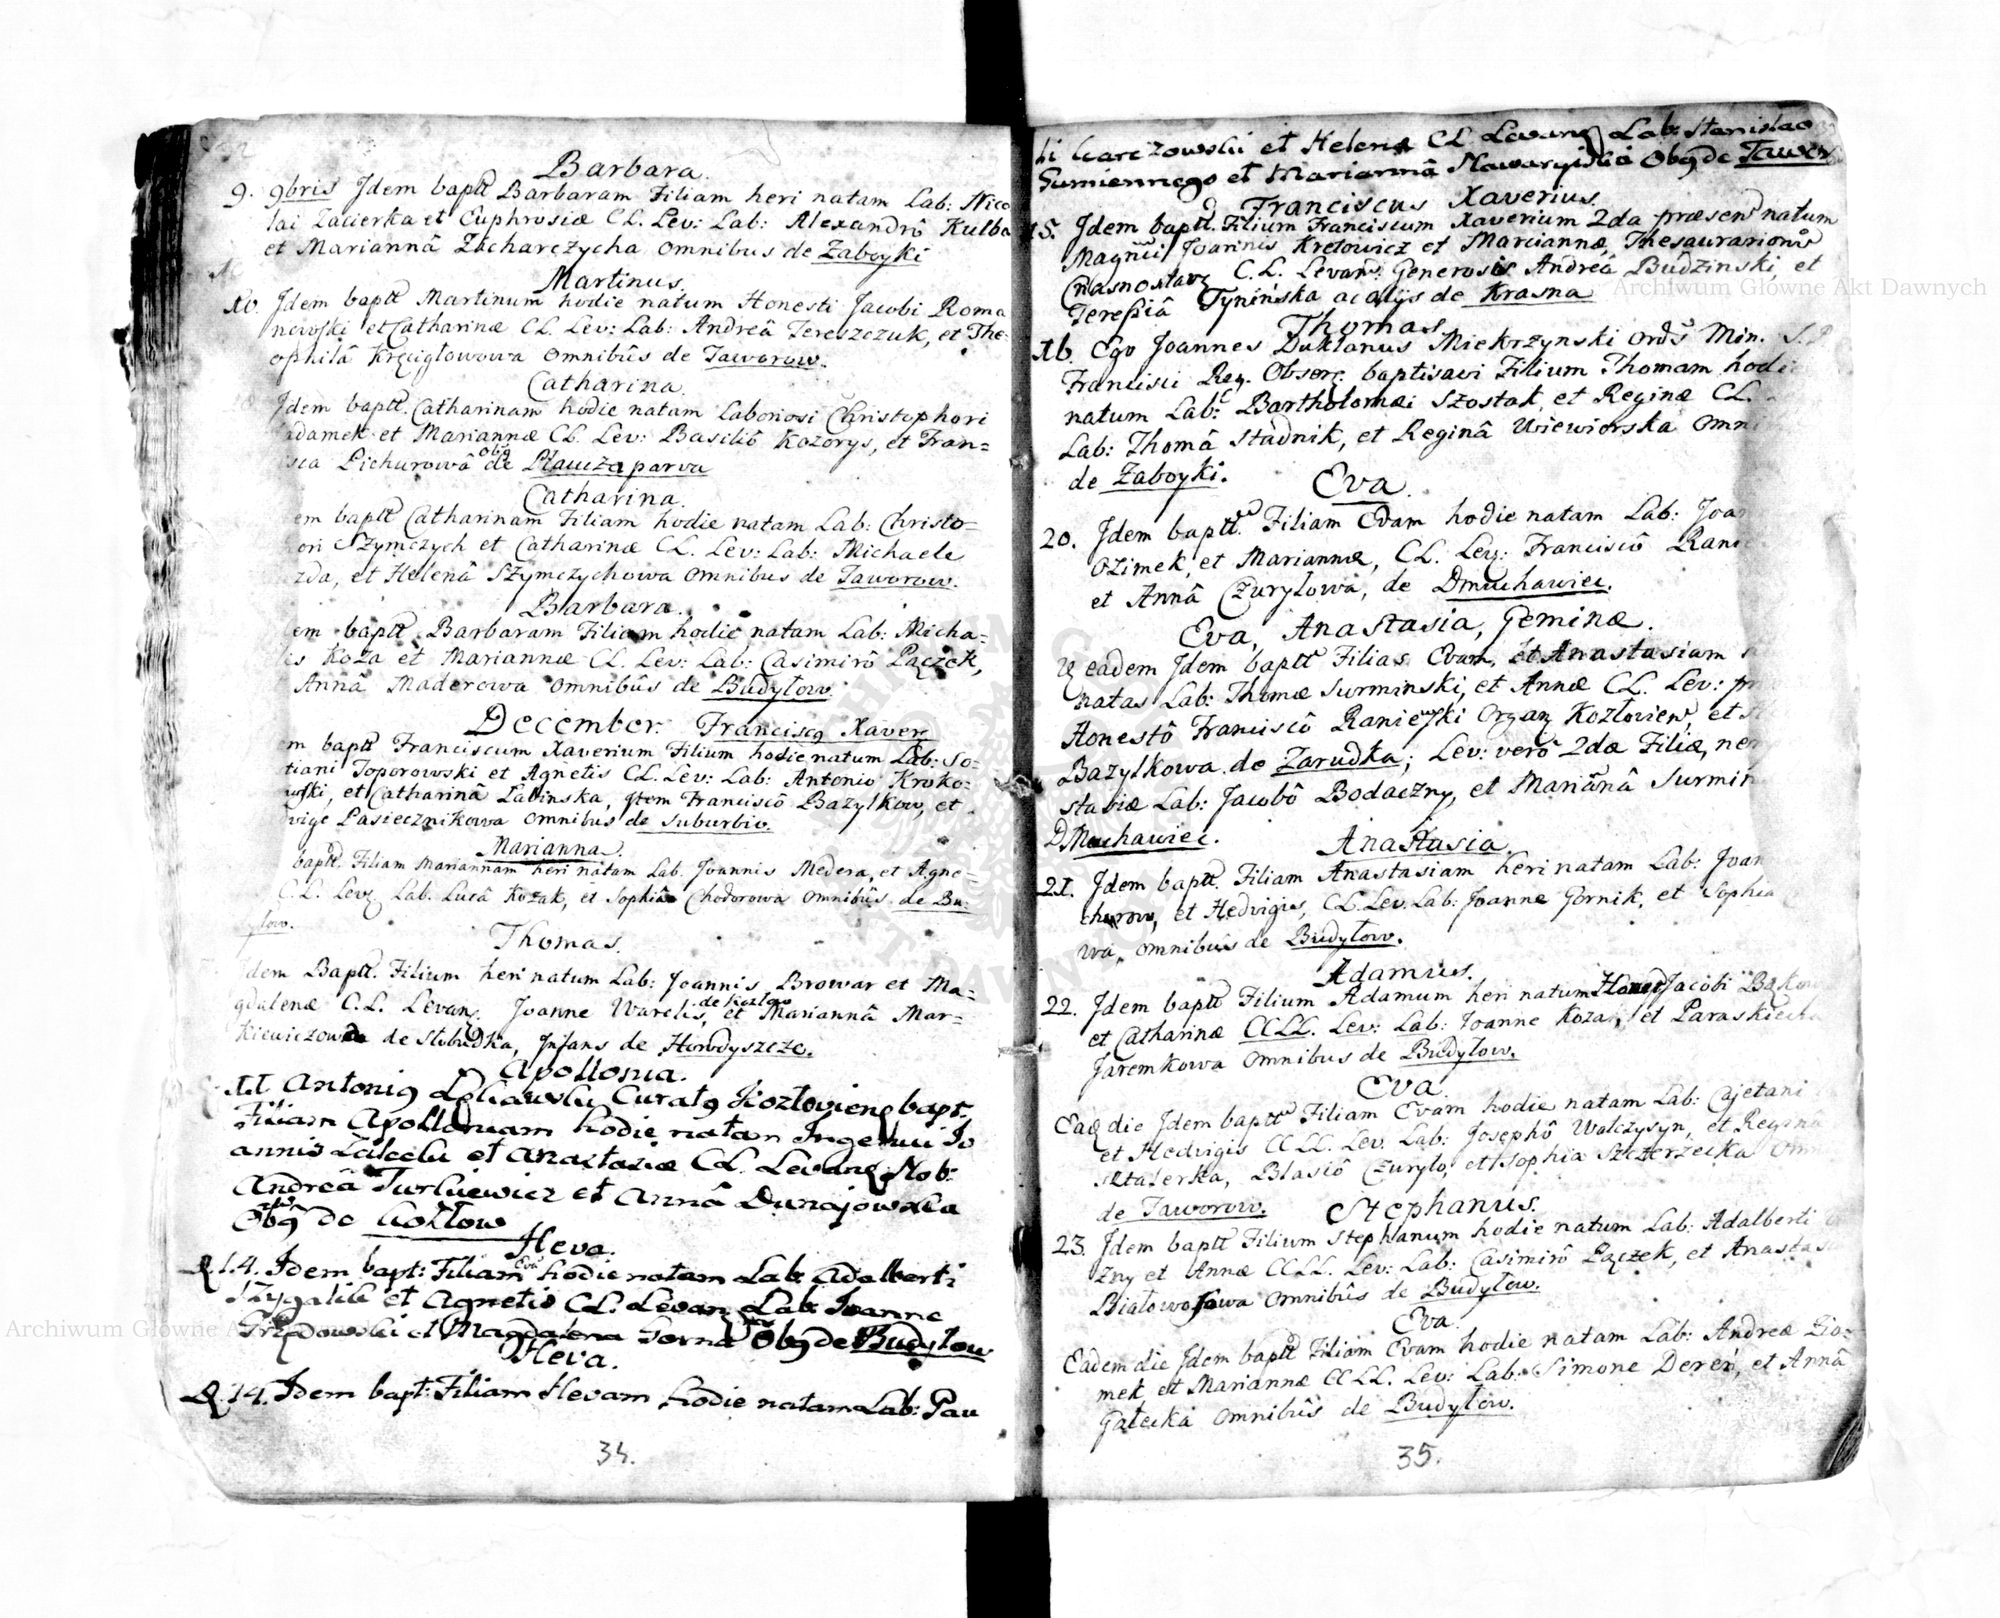 Barbara.
9. 9bris Jdem baptt Barbaram Filiam heri natam Lab: Nico
lai Zacierka et Euphrosiæ CL. Lev: Lab: Alexandrô Kulba
et Mariannâ Zacharczycha omnibus de Zaboyki
Martinus.
10. Jdem baptt Martinum hodie natum Honesti Jacobi Roma
nowski et Catharinæ CL. Lev: Lab: Andreâ Tereszczuk, et The-
ophilâ Kręcigłowowa omnibûs de Jaworow.
Catharina.
Jdem baptt. Catharinam hodie natam Laboriosi Christophori
adamek et Mariannæ CL. Lev: Basiliô Kozorys, et Fran=
isca Pichurowâ obq de Płaucza parva
Catharina.
em baptt Catharinam Filiam hodie natam Lab: Christo=
hori Szymczych et Catharinæ CL. Lev: Lab: Michaele
zda, et Helenâ Szymczychowa omnibus de Jaworow.
Barbara.
em baptt Barbaram Filiam hodie natam Lab: Micha=
lis Koza et Mariannæ CL. Lev: Lab: Casimirô Pączek,
Annâ Maderowa omnibûs de Budyłow.
December. Franciscq Xaver
em baptt Franciscum Xaverium Filium hodie natum Lab: So=
tiani Toporowski et Agnetis CL. Lev: Lab: Antonio Kroko=
wski, et Catharinâ Labinska, Jtem Franciscô Bazylkow, et
vige Pasiecznikowa omnibus de Suburbio.
Marianna.
baptt. Filiam Mariannam heri natam Lab. Joannis Medera, et Agne=
C.L. Levq Lab. Lucâ Kozak, et Sophiâ Chodorowa omnibûs de Bu=
yłow.
Thomas.
Jdem Baptt. Filium heri natum Lab: Joannis Browar et Ma=
gdalenæ C.L. Levanq. Joanne Warelis, de Kozłow et Mariannâ Mar=
kiewiczowa de Slobudka, Jnfans de Horodyszcze.
Apollonia.
11 Antoniq Curatq Kozłovienq bapt.
Filiam Apolloniam hodie natam Jngenui Jo
annis et Anastasiæ CL. Levanq Nob:
Andreâ Turkiewicz et Annâ Dunajowska
Obq de Kozłow
Heva.
D. 14. Jdem bapt: Filiam Evâ hodie natam Lab: Adalberti
et Agnetis CL. Levanq Lab: Joanne
et Magdalena Gorna Obq de Budyłow
Heva.
D. 14. Jdem bapt: Filiam Hevam hodie natam Lab: Pau
34.
li Karczowski et Helenæ CL. Levanq Lab: Stanislao
Sumiennego et Mariannâ Obq de Jawor
Franciscus Xaverius.
15. Jdem baptt. Filium Franciscum Xaverium 2da præsen natum
Magnci Joannis Kretowicz et Mariannæ, Thesaurarionû
Crasnostavz C.L. Levanz: Generosis Andreâ Budzinski, et
Teressiâ Tynińska acolijs de Krasna
Thomas
16. Ego Joannes Duklanus Miekrzynski Ords Min. S. P
Francisci Reg. Observ: baptisavi Filium Thomam hodi
natum Lab: Bartholomæi Szostak, et Reginæ CL.
Lab: Thomâ Stadnik, et Reginâ Wiewiorska omn
de Zaboyki.
Eva.
20. Jdem baptt. Filiam Evam hodie natam Lab: Joan
Ozimek, et Mariannæ, CL. Lev: Franciscô Rani
et Annâ Czuryłowa, de Dmuchawiec.
Eva, Anastasia, Geminæ.
eadem Jdem baptt Filias Evam, et Anastasiam
natas Lab: Thomæ Surminski, et Annæ CL. Lev: pr
Honestô Franciscô Raniewski Organ Kozłovien, et
Bazylkowa de Zarudka; Lev: verô 2dæ Filiæ, nem
stasiæ Lab: Jacobô Bodaczny, et Mariannâ Surmin
Dmuchawiec.
Anastasia.
21. Jdem baptt. Filiam Anastasiam heri natam Lab: Joan
churow, et Hedvigis, CL. Lev: Lab: Joanne Gornik, et Sophia
wa, omnibûs de Budyłow.
Adamus.
22. Jdem baptt Filium Adamum heri natum Honesti Jacobi Bąkow
et Catharinæ CCLL. Lev: Lab: Joanne Koza, et Paraskiewia
Jaremkowa omnibus de Budyłow.
Eva
Eaq die Jdem baptt Filiam Evam hodie natam Lab: Cajetani
et Hedvigis CCLL. Lev: Lab: Josephô Walczysyn, et Reginâ
Blasiô Czuryło, et Sophia Szczerzecka omn
de Jaworow.
Stephanus.
23. Jdem baptt Filium Stephanum hodie natum Lab: Adalberti
zny et Annæ CCLL. Lev: Lab: Casimirô Pączek, et Anastasia
Białowosowa omnibûs de Budyłow.
Eva.
Eadem die Jdem baptt Filiam Evam hodie natam Lab: Andreæ Zio=
mek et Mariannæ CCLL. Lev: Lab: Simone Dereń, et Annâ
Gałecka omnibûs de Budyłow.
35.
Archiwum Główne Akt Dawnych
Archiwum Główne A